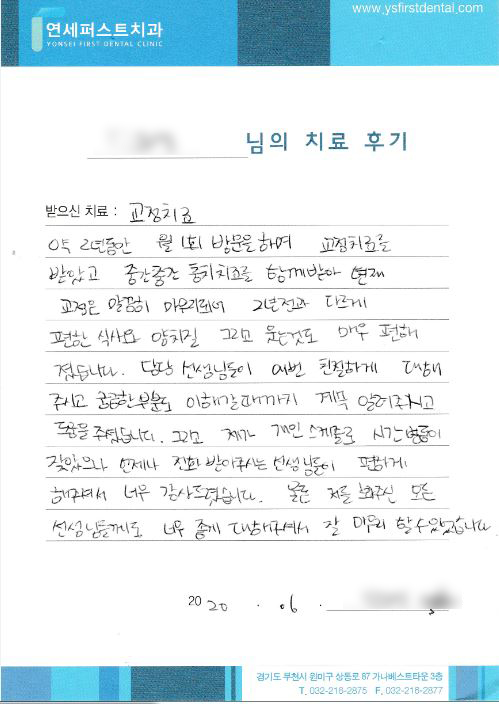 www.ysfirstdental.com
연세퍼스트치과
YONSEI FIRST DENTAL CLINIC
님의 치료 후기
받으신 치료 : 교정치료
약 2년동안 월 1회 방문을 하며 교정치료를
받았고 중간중간 충치치료를 함께받아 현재
교정은 말끔히 마무리되어 2년전과 다르게
편한 식사와 양치질 그리고 웃는것도 매우 편해
졌습니다. 담당 선생님들이 매번 친절하게 대해
주시고 궁금한부분도 이해갈때까지 계속 알려주시고
도움을 주셨답니다. 그리고 제가 개인 스케줄로 시간변동이
잦았으나 언제나 전화 받아주시는 선생님들이 편하게
해주셔서 너무 감사드렸습니다. 물론 저를 봐주신 모든
선생님들께도 너무 좋게 대해주셔서 잘 마무리 할수있었습니다
20 20 . 06 .
경기도 부천시 원미구 상동로 87 가나베스트타운 3층
T. 032-216-2875 F. 032-216-2877